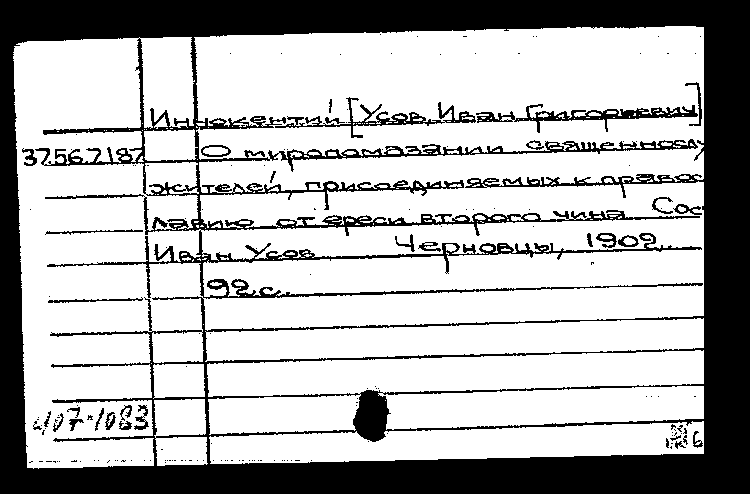 Иннокентий [Усов, Иван Григорьевич]
37.56.7.187 О миропомазании священнослу
жителей, присоединяемых к правос
лавию от ереси второго чина Сос
Иван Усов Черновцы, 1902.
92 с.
407-1083
6